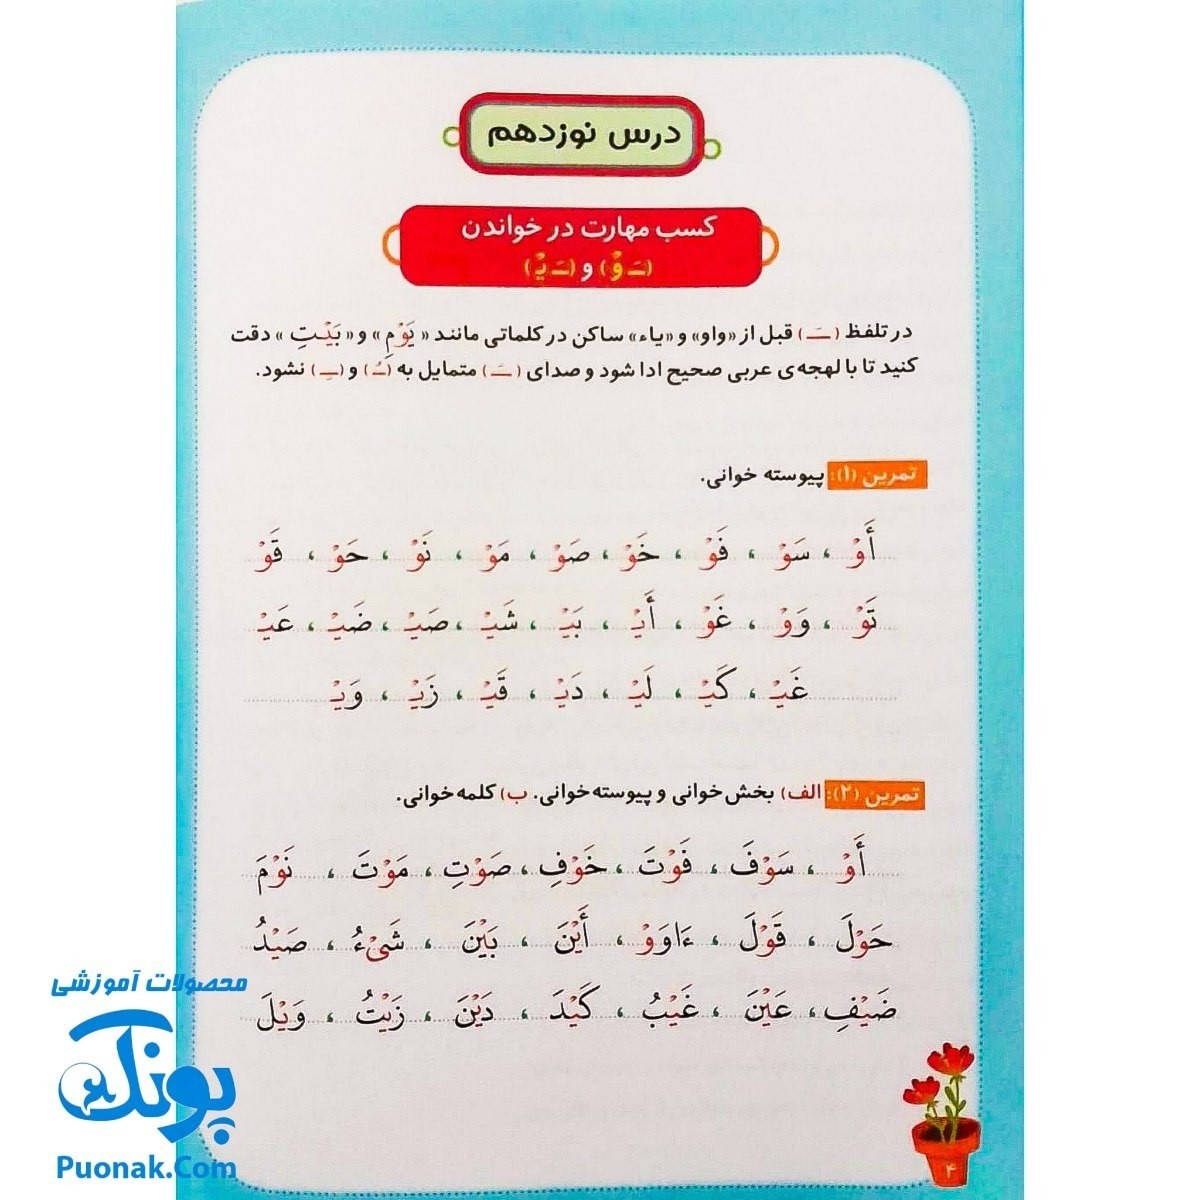 درس نوزدهم
کسب مهارت در خواندن
(ـَ وْ) و (ـَ یْـ)
در تلفظ (ـَـ) قبل از «واو» و «یاء» ساکن در کلماتی مانند «یَوْمِ» و «بَیْتِ» دقت
کنید تا با لهجه‌ی عربی صحیح ادا شود و صدای (ـَـ) متمایل به (ـُـ) و (ـِـ) نشود.
تمرین (۱): پیوسته خوانی.
أَوْ ، سَوْ ، فَوْ ، خَوْ ، صَوْ ، مَوْ ، نَوْ ، حَوْ ، قَوْ
تَوْ ، وَوْ ، غَوْ ، أَیْـ ، بَیْـ ، شَیْـ ، صَیْـ ، ضَیْـ ، عَیْـ
غَیْـ ، کَیْـ ، لَیْـ ، دَیْـ ، قَیْـ ، زَیْـ ، وَیْـ
تمرین (۲): الف) بخش خوانی و پیوسته خوانی. ب) کلمه خوانی.
أَوْ ، سَوْفَ ، فَوْتَ ، خَوْفِ ، صَوْتِ ، مَوْتَ ، نَوْمَ
حَوْلَ ، قَوْلَ ، ءَاوَوْ ، أَیْنَ ، بَیْنَ ، شَیْءُ ، صَیْدُ
ضَیْفِ ، عَیْنَ ، غَیْبُ ، کَیْدَ ، دَیْنَ ، زَیْتُ ، وَیْلَ
محصولات آموزشی
پونک
Puonak.Com
۴